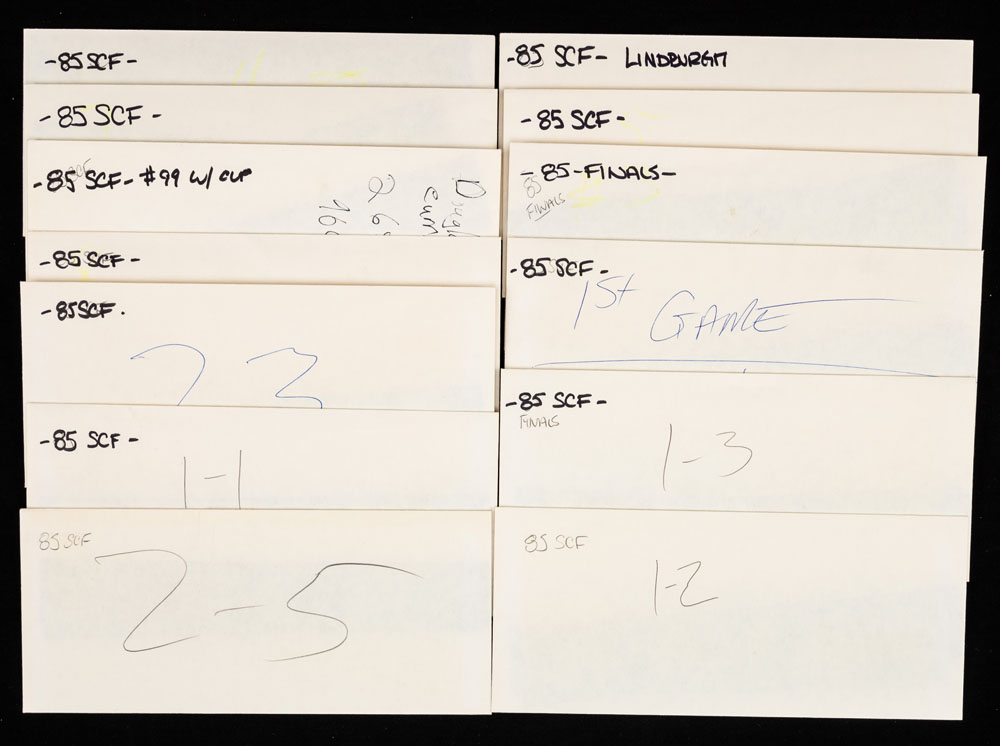 -85 SCF-
-85 SCF-
-85 SCF- #99 W/ CUP
266
-85 SCF-
-85 SCF.
-85 SCF-
1-1
85 SCF
2-5
-85 SCF- LINDBURGH
-85 SCF-
-85-FINALS-
85
FINALS
-85 SCF-
1St GAME
-85 SCF-
FINALS
1-3
85 SCF
1-2